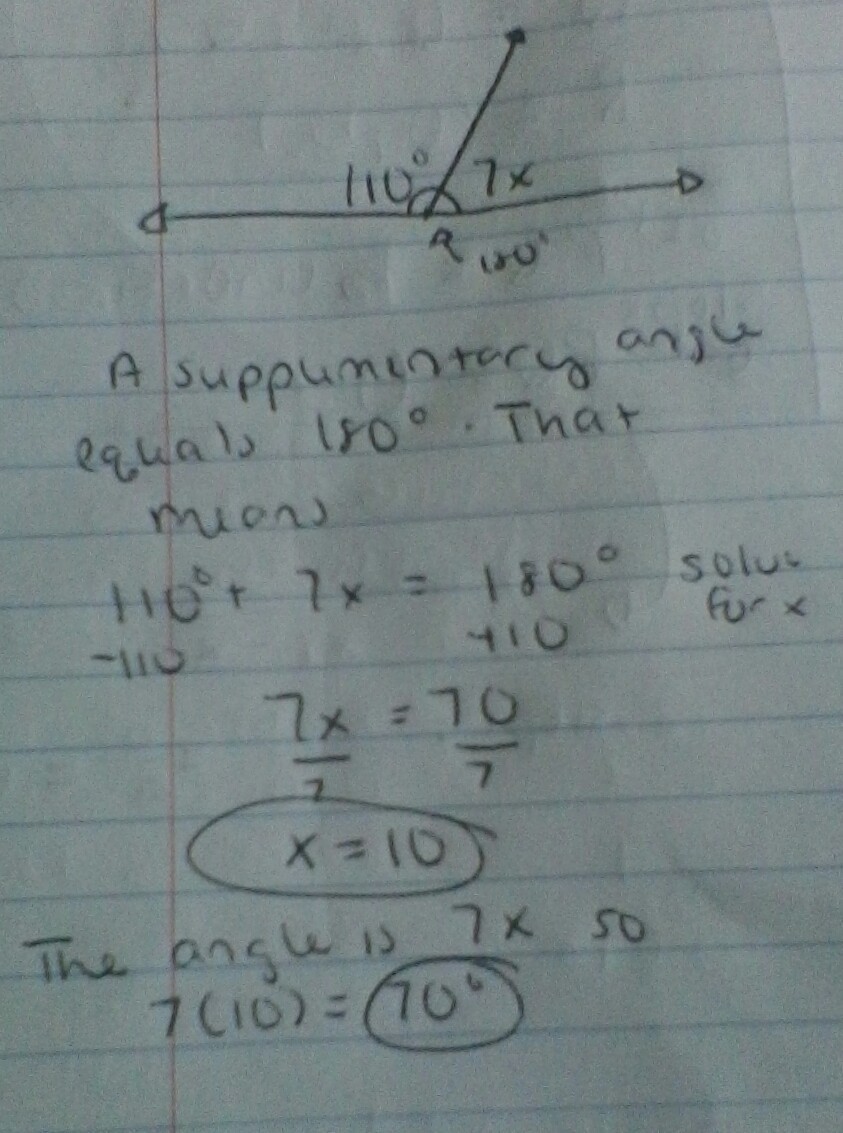 110° 7x
180°
A suppumentary angle
equals 180°. That
means
110° + 7x = 180° solve
for x
-110 -110
7x = 70
7 7
x = 10
The angle is 7x so
7(10) = 70°